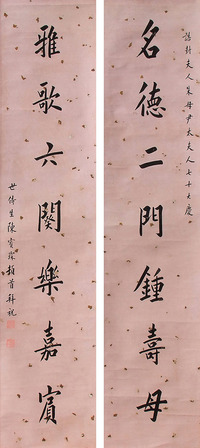 誥封夫人朱母尹太夫人七十大慶
名德二門鍾壽母
雅歌六闋樂嘉賓
世侍生陳寶琛頓首拜祝